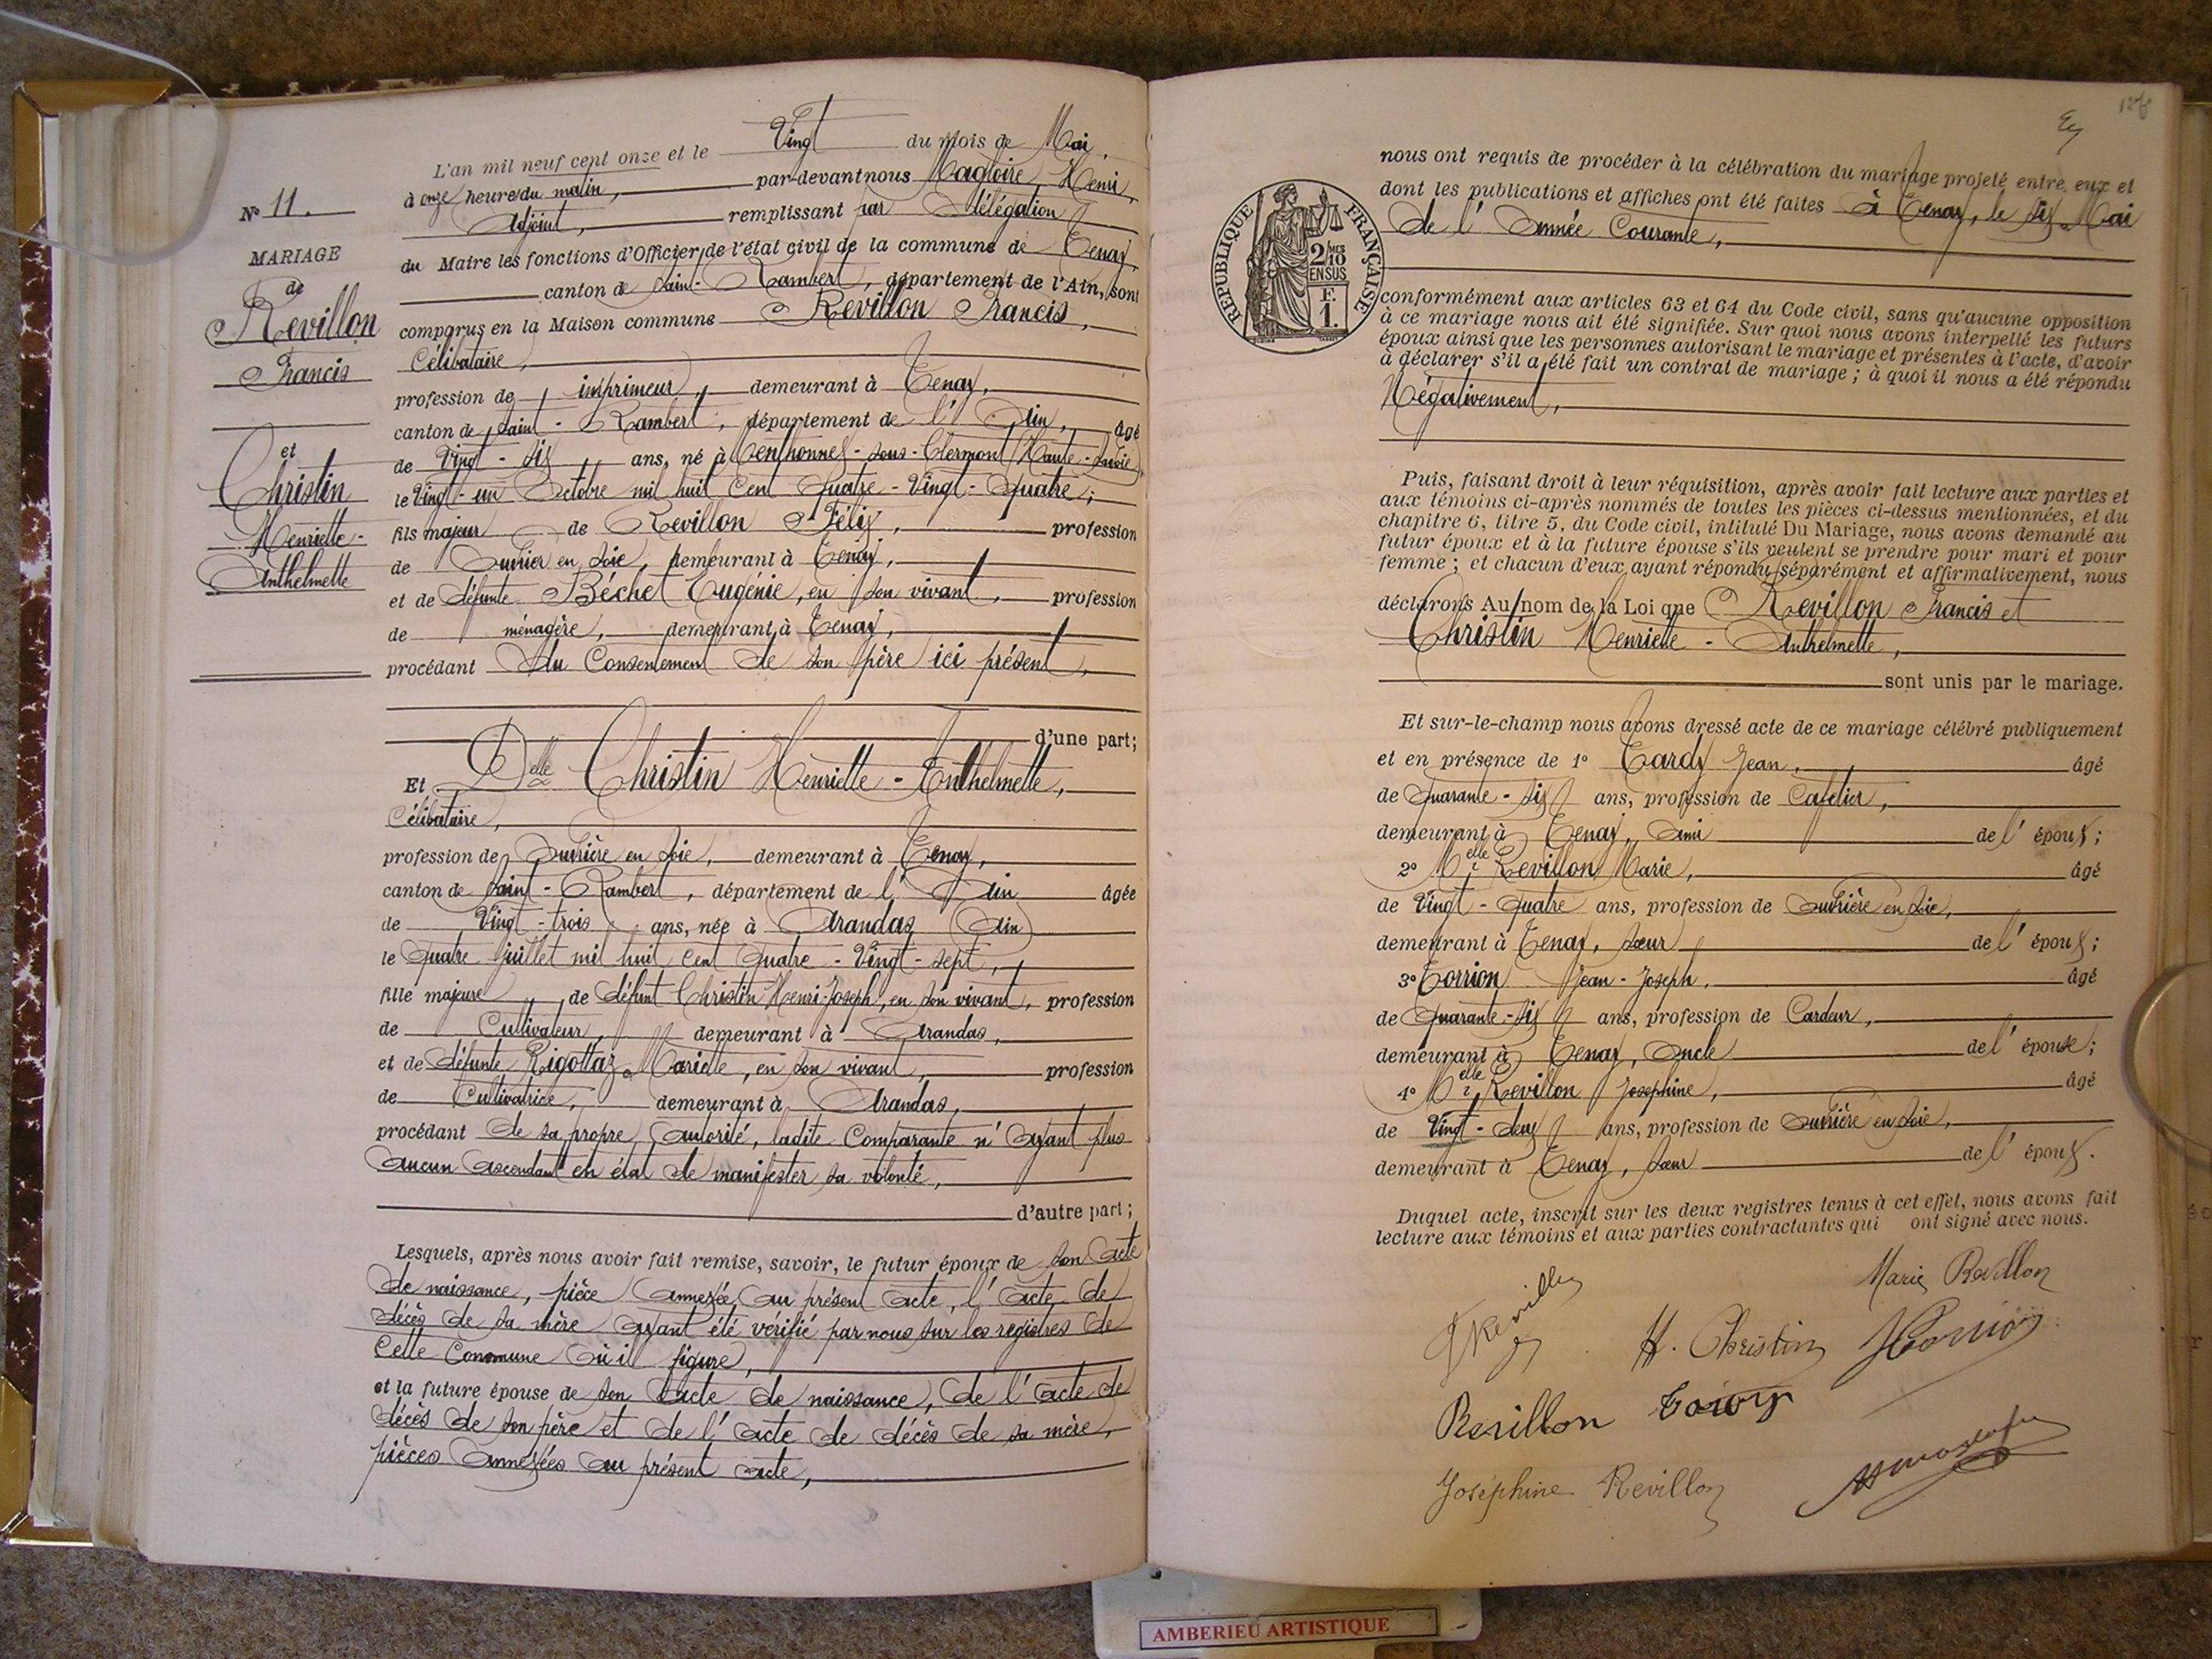 L'an mil neuf cent onze et le Vingt du mois de Mai,
à onze heure du matin, par-devant nous Magloire, Henri,
Adjoint, remplissant par Délégation
du Maire les fonctions d'Officier de l'état civil de la commune de Tenay,
canton de Saint-Rambert, département de l'Ain, sont
comparus en la Maison commune Revillon Francis,
Célibataire,
profession de imprimeur, demeurant à Tenay,
canton de Saint-Rambert, département de l'Ain, âgé
de Vingt-six ans, né à Menthonnex-sous-Clermont (Haute-Savoie)
le Vingt-un Octobre mil huit Cent Quatre-Vingt-Quatre;
fils majeur de Revillon Félix, profession
de Ouvrier en Soie, demeurant à Tenay,
et de défunte Béchet Eugénie, en son vivant, profession
de ménagère, demeurant à Tenay,
procédant du Consentement de son père ici présent,
d'une part;
Et Delle Christin Henriette-Anthelmette,
Célibataire,
profession de Ouvrière en Soie, demeurant à Tenay,
canton de Saint-Rambert, département de l'Ain âgée
de Vingt-trois ans, née à Arandas (Ain)
le Quatre juillet mil huit Cent Quatre-Vingt-sept,
fille majeure de défunt Christin Henri-Joseph, en son vivant, profession
de Cultivateur, demeurant à Arandas,
et de défunte Rigottaz Mariette, en son vivant, profession
de Cultivatrice, demeurant à Arandas,
procédant de sa propre autorité, ladite Comparante n'ayant plus
aucun ascendant en état de manifester sa volonté,
d'autre part;
Lesquels, après nous avoir fait remise, savoir, le futur époux de son acte
de naissance, pièce annexée au présent acte, l'acte de
décès de sa mère ayant été verifié par nous sur les registres de
Cette Commune où il figure,
et la future épouse de son acte de naissance, de l'acte de
décès de son père et de l'acte de décès de sa mère,
pièces annexées au présent acte,
No 11.
MARIAGE
de
Revillon
Francis
et
Christin
Henriette-
Anthelmette
nous ont requis de procéder à la célébration du mariage projeté entre eux et
dont les publications et affiches ont été faites à Tenay, le six Mai
de l'année Courante,
REPUBLIQUE FRANÇAISE
2/10 MES
EN SUS
F.
1.
conformément aux articles 63 et 64 du Code civil, sans qu'aucune opposition
à ce mariage nous ait été signifiée. Sur quoi nous avons interpellé les futurs
époux ainsi que les personnes autorisant le mariage et présentes à l'acte, d'avoir
à déclarer s'il a été fait un contrat de mariage; à quoi il nous a été répondu
Négativement,
Puis, faisant droit à leur réquisition, après avoir fait lecture aux parties et
aux témoins ci-après nommés de toutes les pièces ci-dessus mentionnées, et du
chapitre 6, titre 5, du Code civil, intitulé Du Mariage, nous avons demandé au
futur époux et à la future épouse s'ils veulent se prendre pour mari et pour
femme; et chacun d'eux ayant répondu séparément et affirmativement, nous
déclarons Au nom de la Loi que Revillon Francis et
Christin Henriette-Anthelmette,
sont unis par le mariage.
Et sur-le-champ nous avons dressé acte de ce mariage célébré publiquement
et en présence de 1° Tardy Jean, âgé
de Quarante-six ans, profession de Cafetier,
demeurant à Tenay, ami de l'époux;
2° Melle Revillon Marie, âgé
de Vingt-Quatre ans, profession de Ouvrière en Soie,
demeurant à Tenay, sœur de l'époux;
3° Torrion Jean-Joseph, âgé
de Quarante-six ans, profession de Cardeur,
demeurant à Tenay, oncle de l'épouse;
4° Melle Revillon Josephine, âgé
de Vingt-deux ans, profession de Ouvrière en Soie,
demeurant à Tenay, sœur de l'époux.
Duquel acte, inscrit sur les deux registres tenus à cet effet, nous avons fait
lecture aux témoins et aux parties contractantes qui ont signé avec nous.
Marie Revillon
F Revillon
H. Christin
Revillon
Joséphine Revillon
AMBERIEU ARTISTIQUE